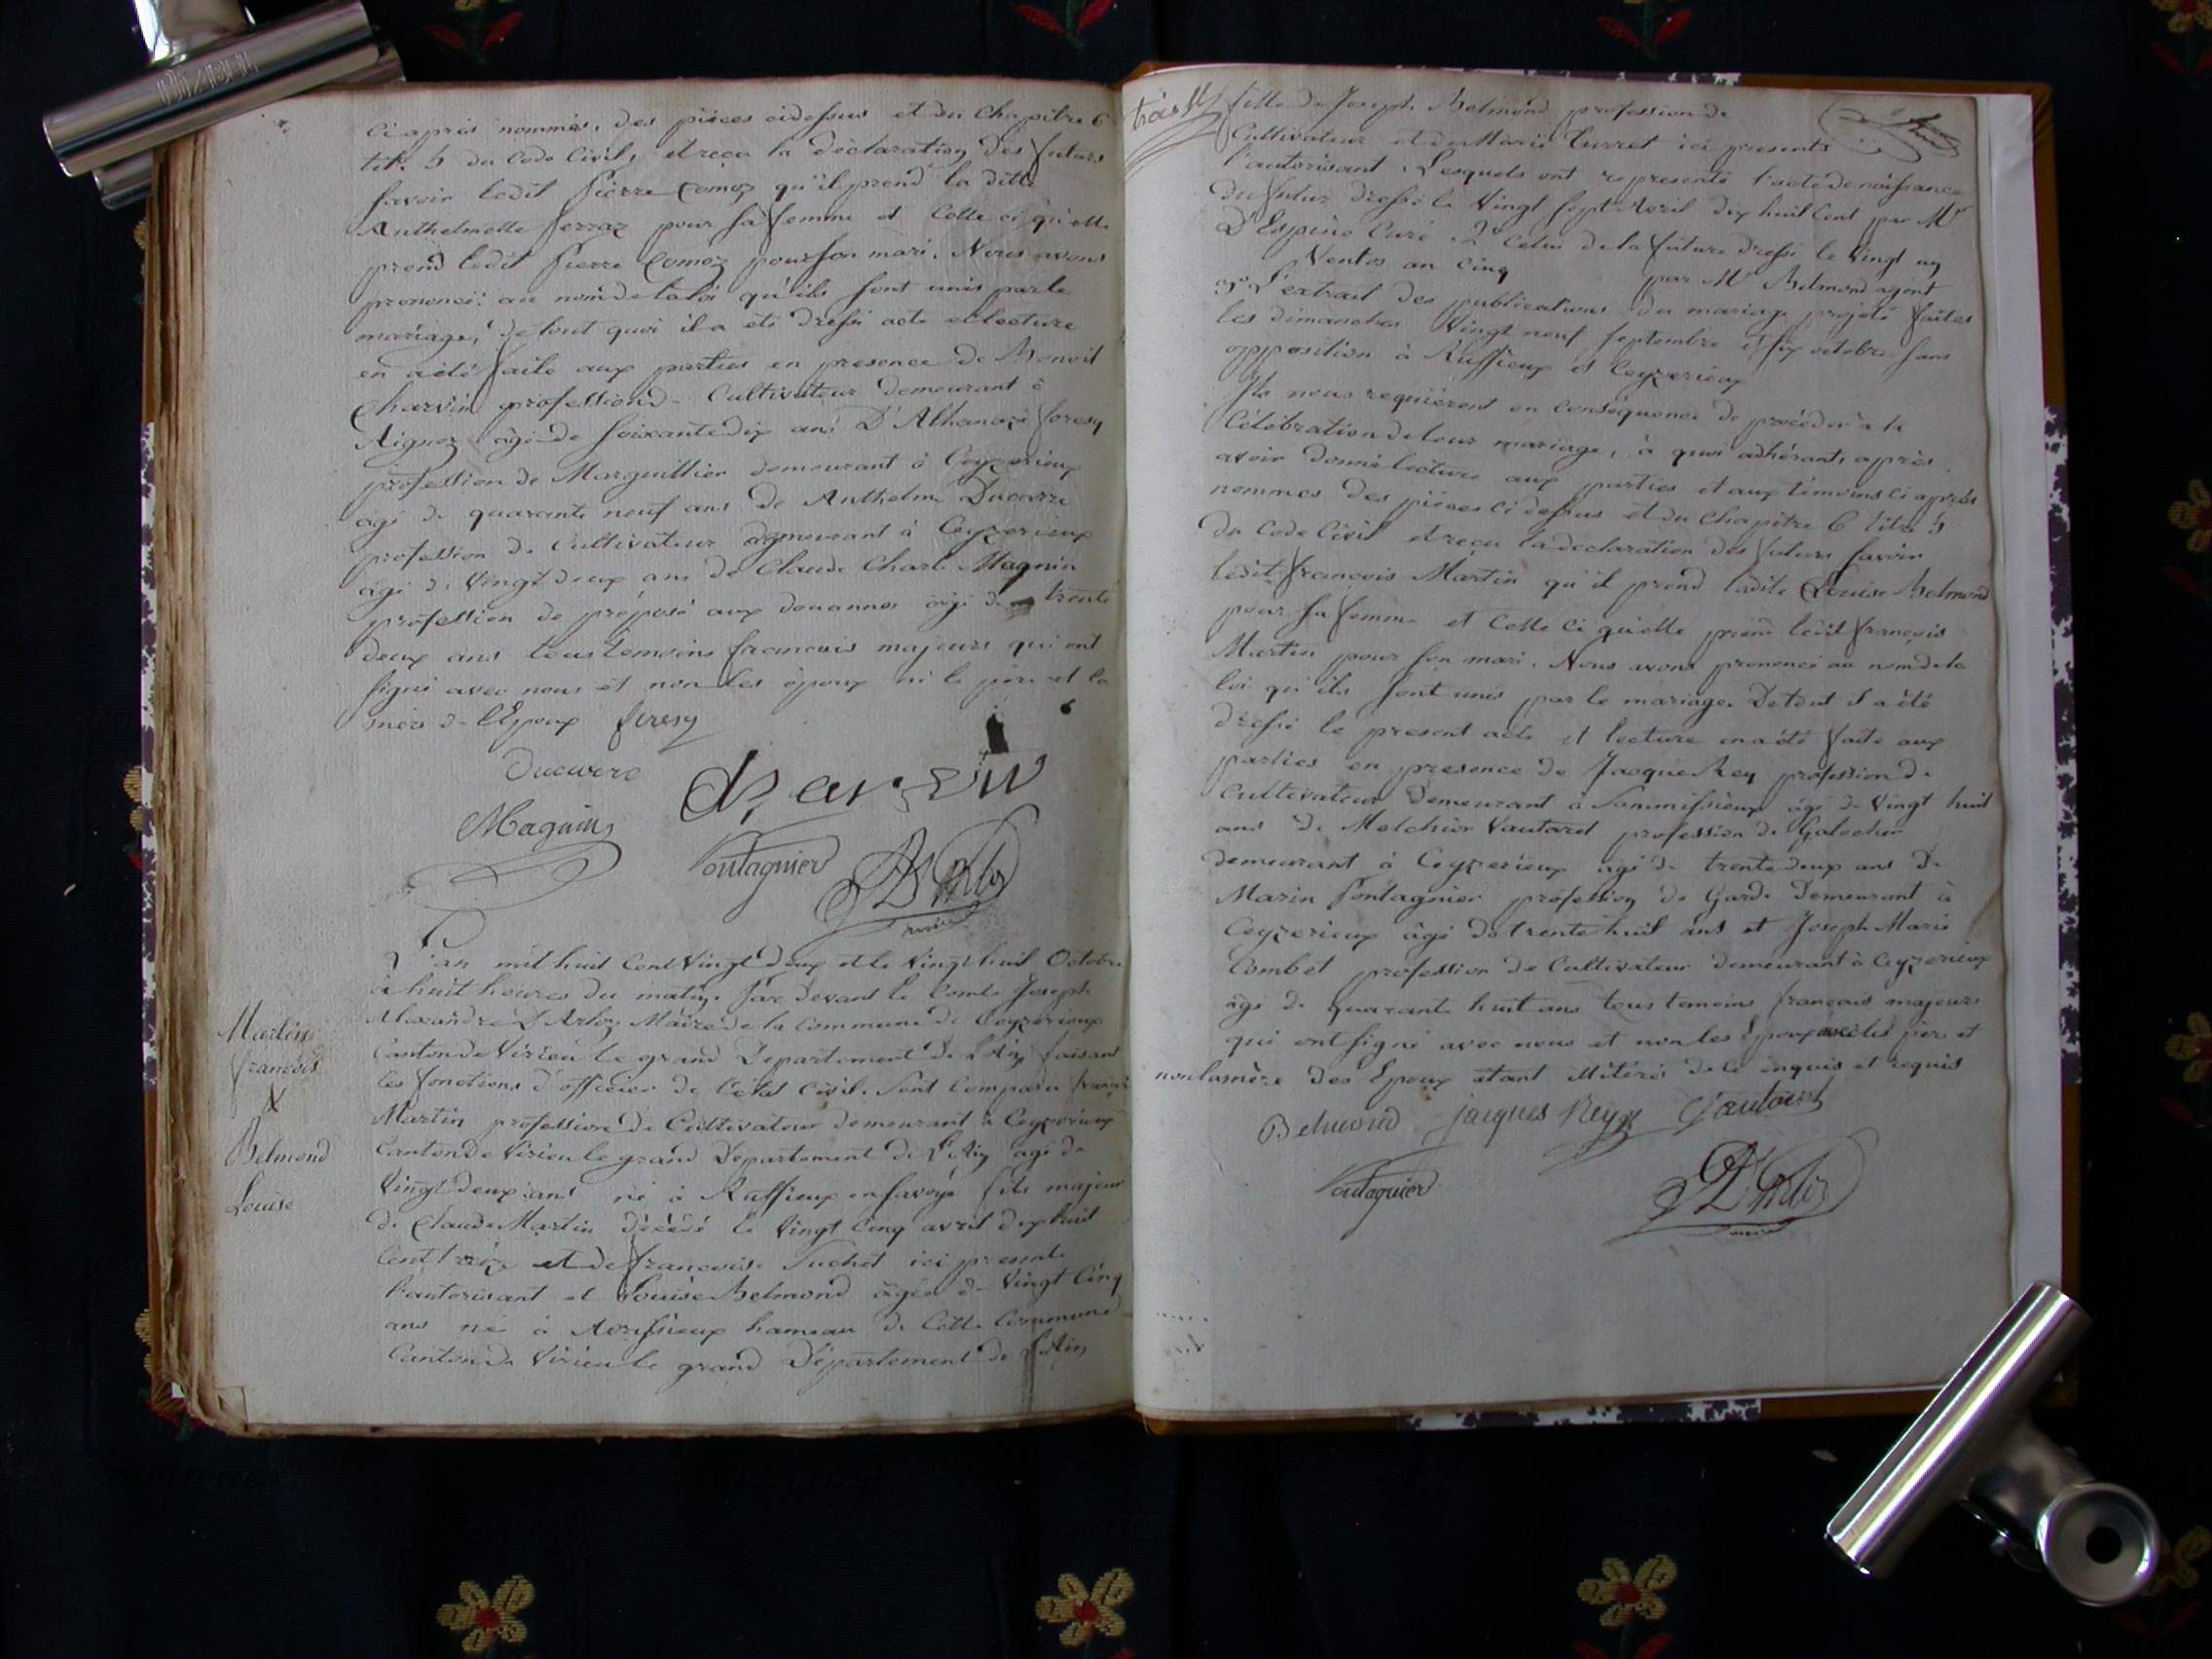 Ci après nommés, des pièces cidessus et du Chapitre 6
tit. 5 du Code Civil, et reçu la déclaration des futurs
savoir ledit Pierre Comoz qu'il prend la ditte
Anthelmette ferraz pour sa femme et Celle ci qu'elle
prend ledit Pierre Comoz pour son mari. Nous avons
prononcé au nom de la loi qu'ils sont unis par le
mariage, de tout quoi il a été dressé acte et lecture
en a été faite aux parties en presence de Benoit
Charvin profession de Cultivateur demeurant à
Aignoz âgé de soixante dix ans D'Athanaze foresy
profession de Marguillier demeurant à Ceyzerieux
âgé de quarante neuf ans de Anthelme Ducarre
profession de Cultivateur demeurant à Ceyzerieux
âgé de vingt deux ans de Claude Charle Magnin
profession de préposé aux douannes âgé de trente
deux ans tous temoins francais majeurs qui ont
signé avec nous et non les époux ni le père et la
mère de l'Epoux foresy
Ducarre
Charvin
Magnin
Pontagnier
D'Arloz
maire
L'an mil huit Cent Vingt deux et le Vingt huit Octobre
à huit heures du matin. Par devant le Comte Joseph
Alexandre D'Arloz Maire de la Commune de Ceyzerieux
Canton de Virieu le grand Departement de L'Ain faisant
les fonctions d'officier de l'état Civil. Sont Comparu
Martin profession de Cultivateur demeurant à Ceyzerieux
Canton de Virieu le grand Departement de L'Ain âgé de
Vingt deux ans né à Ruffieux en Savoye fils majeur
de Claude Martin décédé le Vingt cinq avril dix huit
Cent treize et de françoise Suchet ici presente
l'autorisant et Louise Belmond âgée de Vingt Cinq
ans née à Avrissieux hameau de Cette Commune
Canton de Virieu le grand Département de L'Ain
Martin
françois
X
Belmond
Louise
fille de Joseph Belmond profession de
Cultivateur et de Marie Curret ici presents
l'autorisant. Lesquels ont representé l'acte de naissance
du futur dressé le Vingt sept Avril dix huit Cent par Mr
D'Espine Curé. 2° Celui de la future dressé le Vingt un
Ventos an Cinq par Mr Belmond agent
3° L'extrait des publications du mariage projeté faites
les dimanches Vingt neuf septembre et six octobre sans
oppposition à Ruffieux et Ceyzerieux
Ils nous requièrent en conséquence de procéder à la
Célébration de leur mariage, à quoi adhérants, après
avoir donné lecture aux parties et aux témoins ci après
nommes des pièces ci dessus et du Chapitre 6 titre 5
du Code Civil et reçu la declaration des futurs savoir
ledit françois Martin qu'il prend ladite Louise Belmond
pour sa femme et Celle Ci quelle prend ledit françois
Martin pour son mari. Nous avons prononcé au nom de la
loi qu'ils sont unis par le mariage. De tout il a été
dressé le present acte et lecture en a été faite aux
parties en presence de Jacque Rey profession de
Cultivateur demeurant à âgé de Vingt huit
ans de Melchior Vautaret profession de Galocher
demeurant à Ceyzerieux âgé de trente deux ans de
Marin Pontagnier profession de Garde Demeurant à
Ceyzerieux âgé de trente huit ans et Joseph Marie
Combet profession de Cultivateur demeurant à Ceyzerieux
âgé de quarante huit ans tous temoins francais majeurs
qui ont signé avec nous et non les Epoux père et
non la mère des Epoux étant illitérés de ce enquis et requis
Belmond jacques Rey Vautaret
Pontagnier
D'Arloz
maire